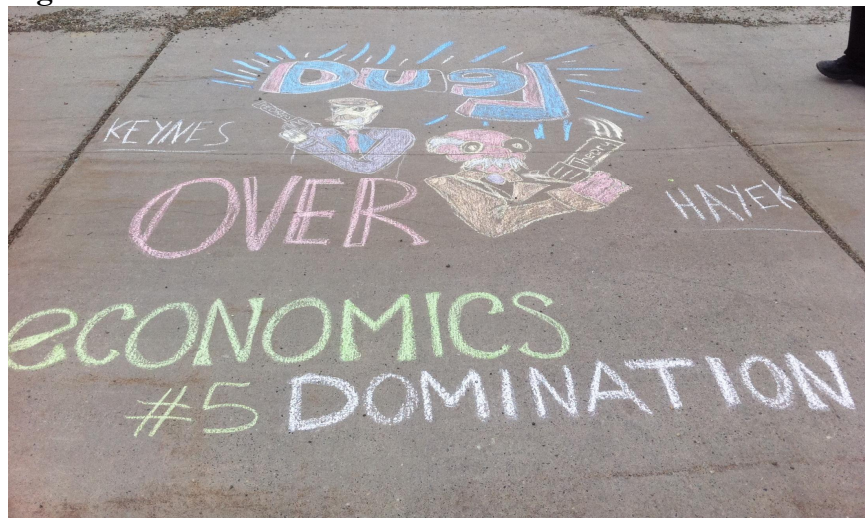 Duel
KEYNES
Theory
OVER
HAYEK
eCONOMICS
#5 DOMINATION